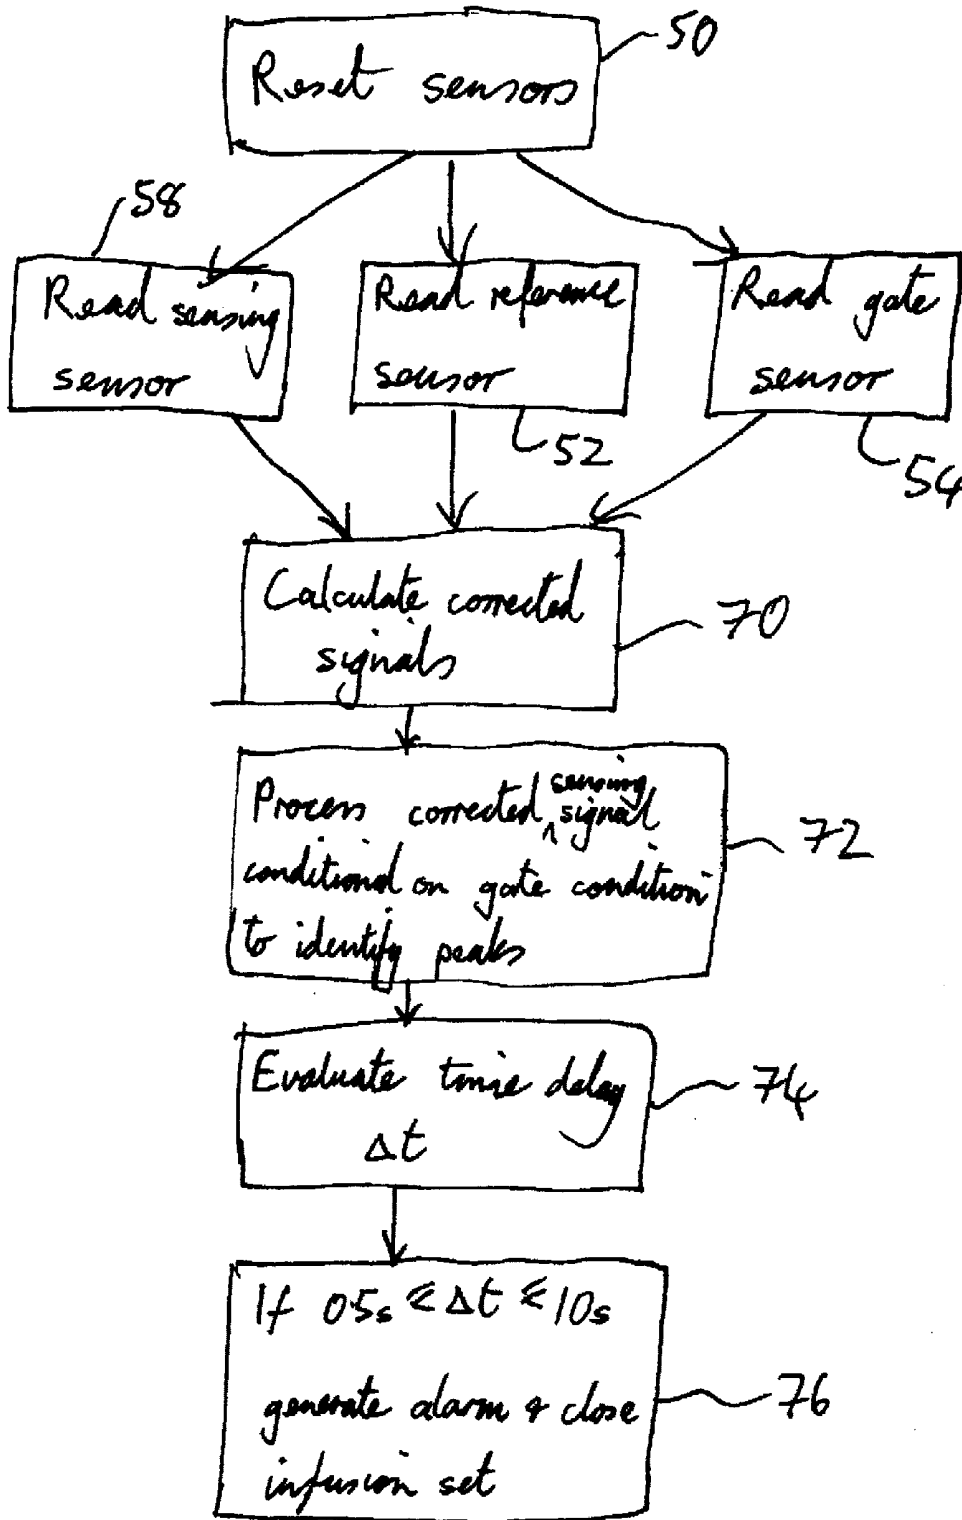 50
Reset sensors
58
Read sensing
sensor
Read reference
sensor
52
Read gate
sensor
54
Calculate corrected
signals
70
sensing
Process corrected ^ signal
conditional on gate condition
to identify peaks
72
Evaluate time delay
Δt
74
If 0.5s ≤ Δt ≤ 10s
generate alarm & close
infusion set
76